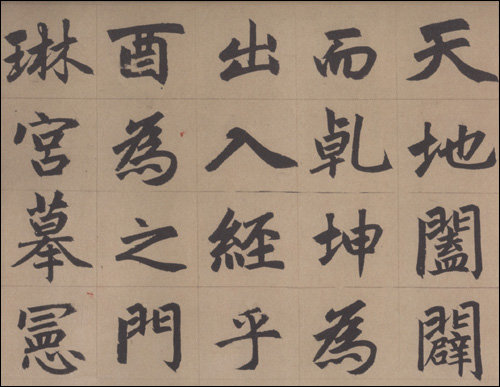 天地闔闢
而乹坤為
出入經乎
酉為之門
琳宮摹憲